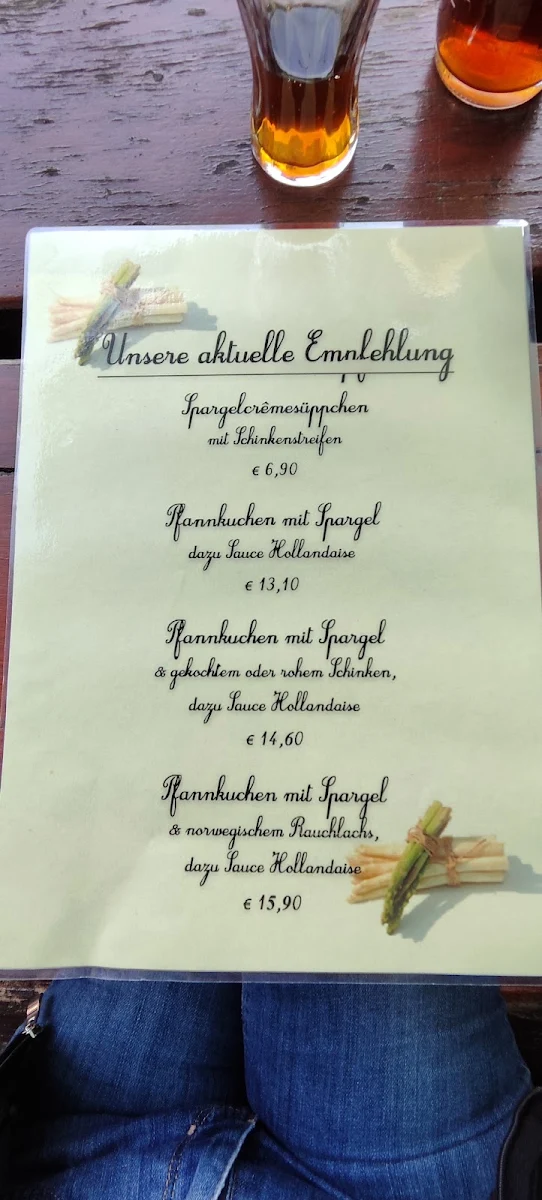 Unsere aktuelle Empfehlung
Spargelcrêmesüppchen
mit Schinkenstreifen
€ 6,90
Pfannkuchen mit Spargel
dazu Sauce Hollandaise
€ 13,10
Pfannkuchen mit Spargel
& gekochtem oder rohem Schinken,
dazu Sauce Hollandaise
€ 14,60
Pfannkuchen mit Spargel
& norwegischem Rauchlachs,
dazu Sauce Hollandaise
€ 15,90